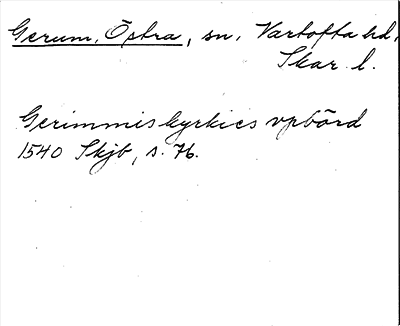 Gerum, Östra, sn, Vartofta hd,
Skar. l.
Gerimmis kyrkies vpbörd
1540 Skjb, s. 76.